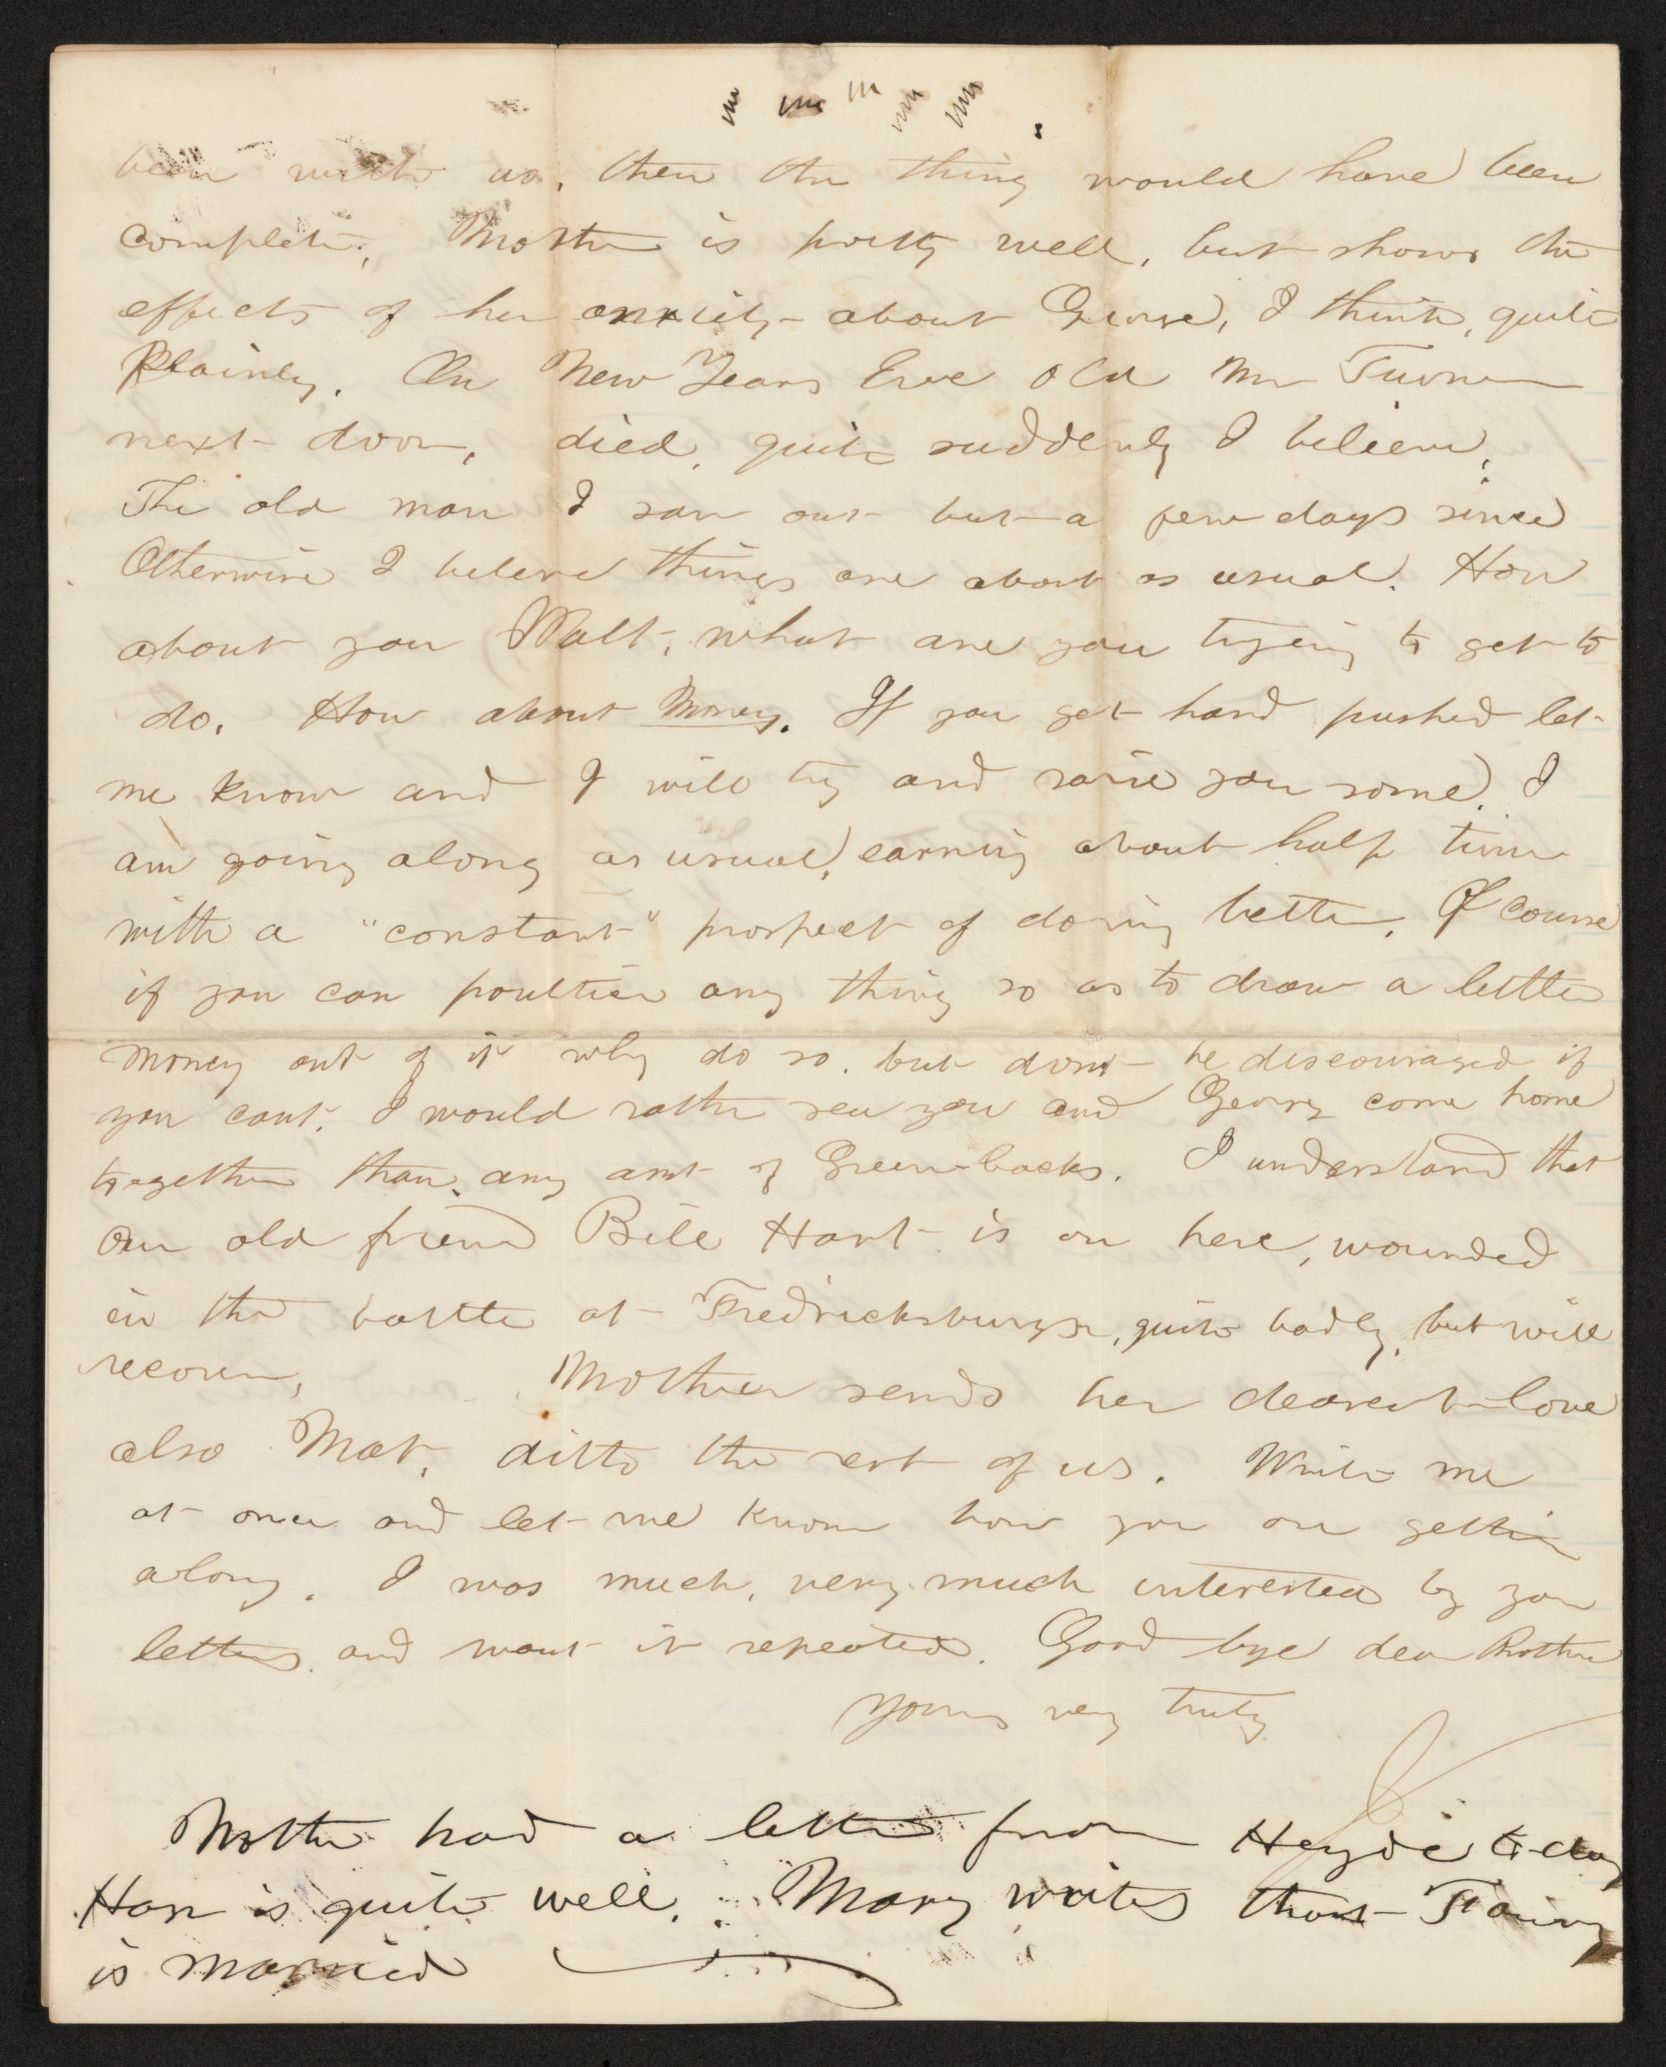 been with us, then the thing would have been
complete, Mother is pretty well, but shows the
effects of her anxiety about George, I think, quite
plainly. On New Years Eve old Mr Turner
next door, died, quite suddenly I believe,
The old man I saw out but a few days since
Otherwise I beleive things are about as usual. How
about you Walt, what are you trying to get to
do. How about Money. If you get hard pushed let
me know and I will try and raise you some. I
am going along as usual, earning about half time
with a "constant" prospect of doing better. Of course
if you can poultice any thing so as to draw a little
money out of it why do so. but dont be discouraged if
you cant. I would rather see you and George come home
together than any amt of Green-backs. I understand that
our old friend Bill Hart is on here, wounded
in the battle at Fredricksburgh, quite badly, but will
recover, Mother sends her dearest love
also Mat, ditto the rest of us. Write me
at once and let me know how you are getting
along. I was much, very much interested by you
letter and want it repeated. Good bye dear Brother
Yours very truly
J
Mother had a letter from Heyde to-day
Han is quite well. Mary writes that Fanny
is married